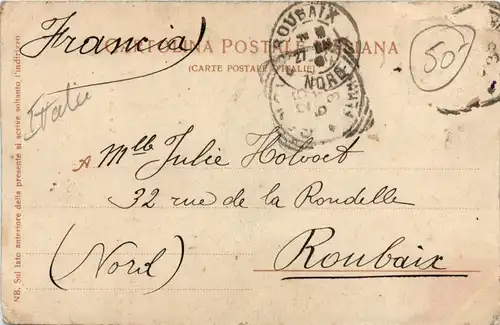 Francia
CARTOLINA POSTALE ITALIANA
(CARTE POSTALE D'ITALIE)
ROUBAIX
NORD
50
Italie
NB. Sul lato anteriore della presente si scrive soltanto l'indirizzo
A Mlle Julie Holvoet
32 rue de la Rondelle
(Nord) Roubaix